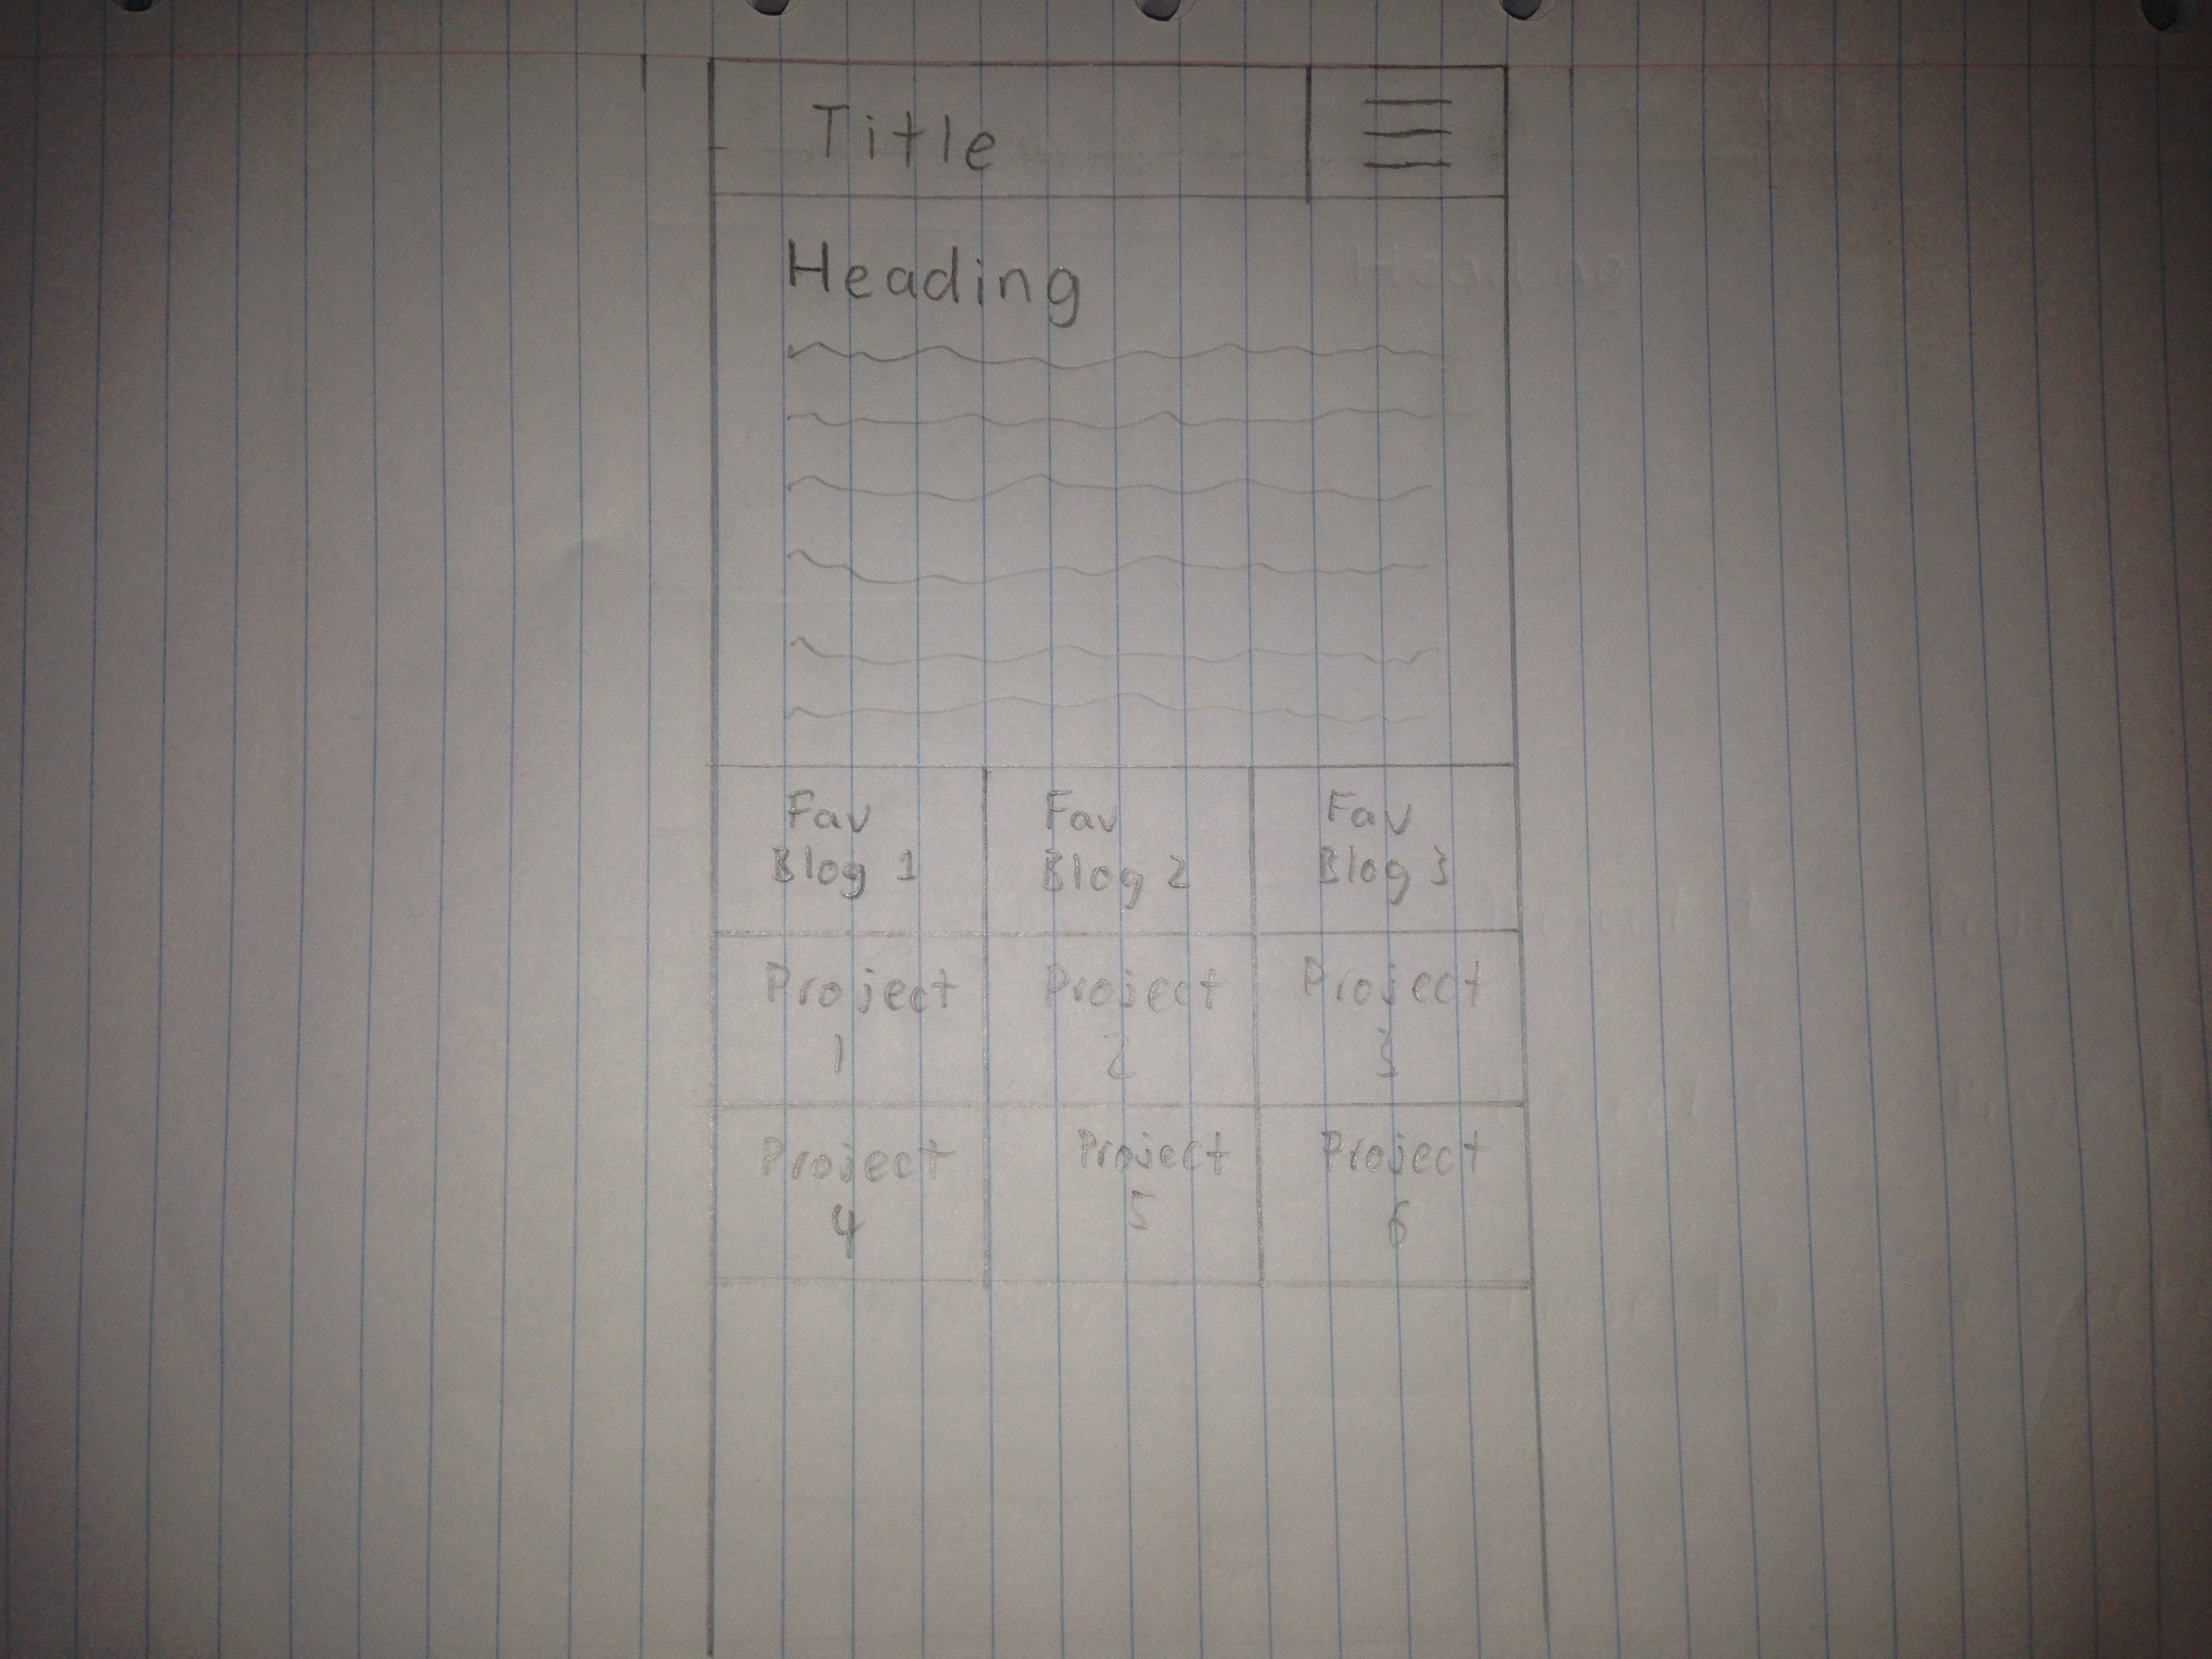 Title
Heading
Fav
Blog 1
Fav
Blog 2
Fav
Blog 3
Project
1
Project
2
Project
3
Project
4
Project
5
Project
6